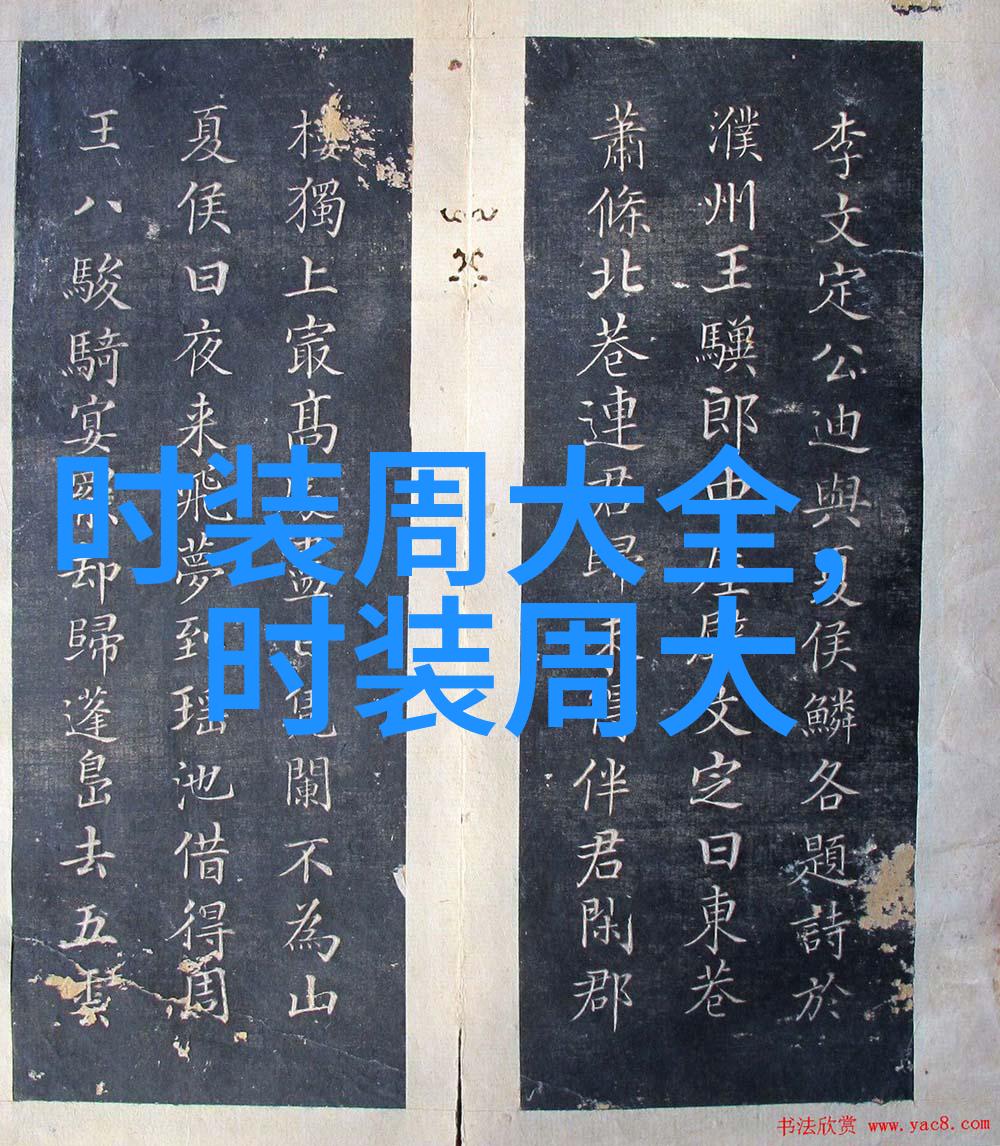 李文定公迪與夏侯鱗各題詩於
濮州王驥郎中屋壁文定曰東巷
蕭條北巷連君歸未得伴君閑郡
樓獨上最高
闌不為山
夏侯曰夜来飛夢到瑶池借得周
王八駿騎宴罷却歸蓬島去五雲
时装周大全,
时装周大
书法欣赏 www.yac8.com